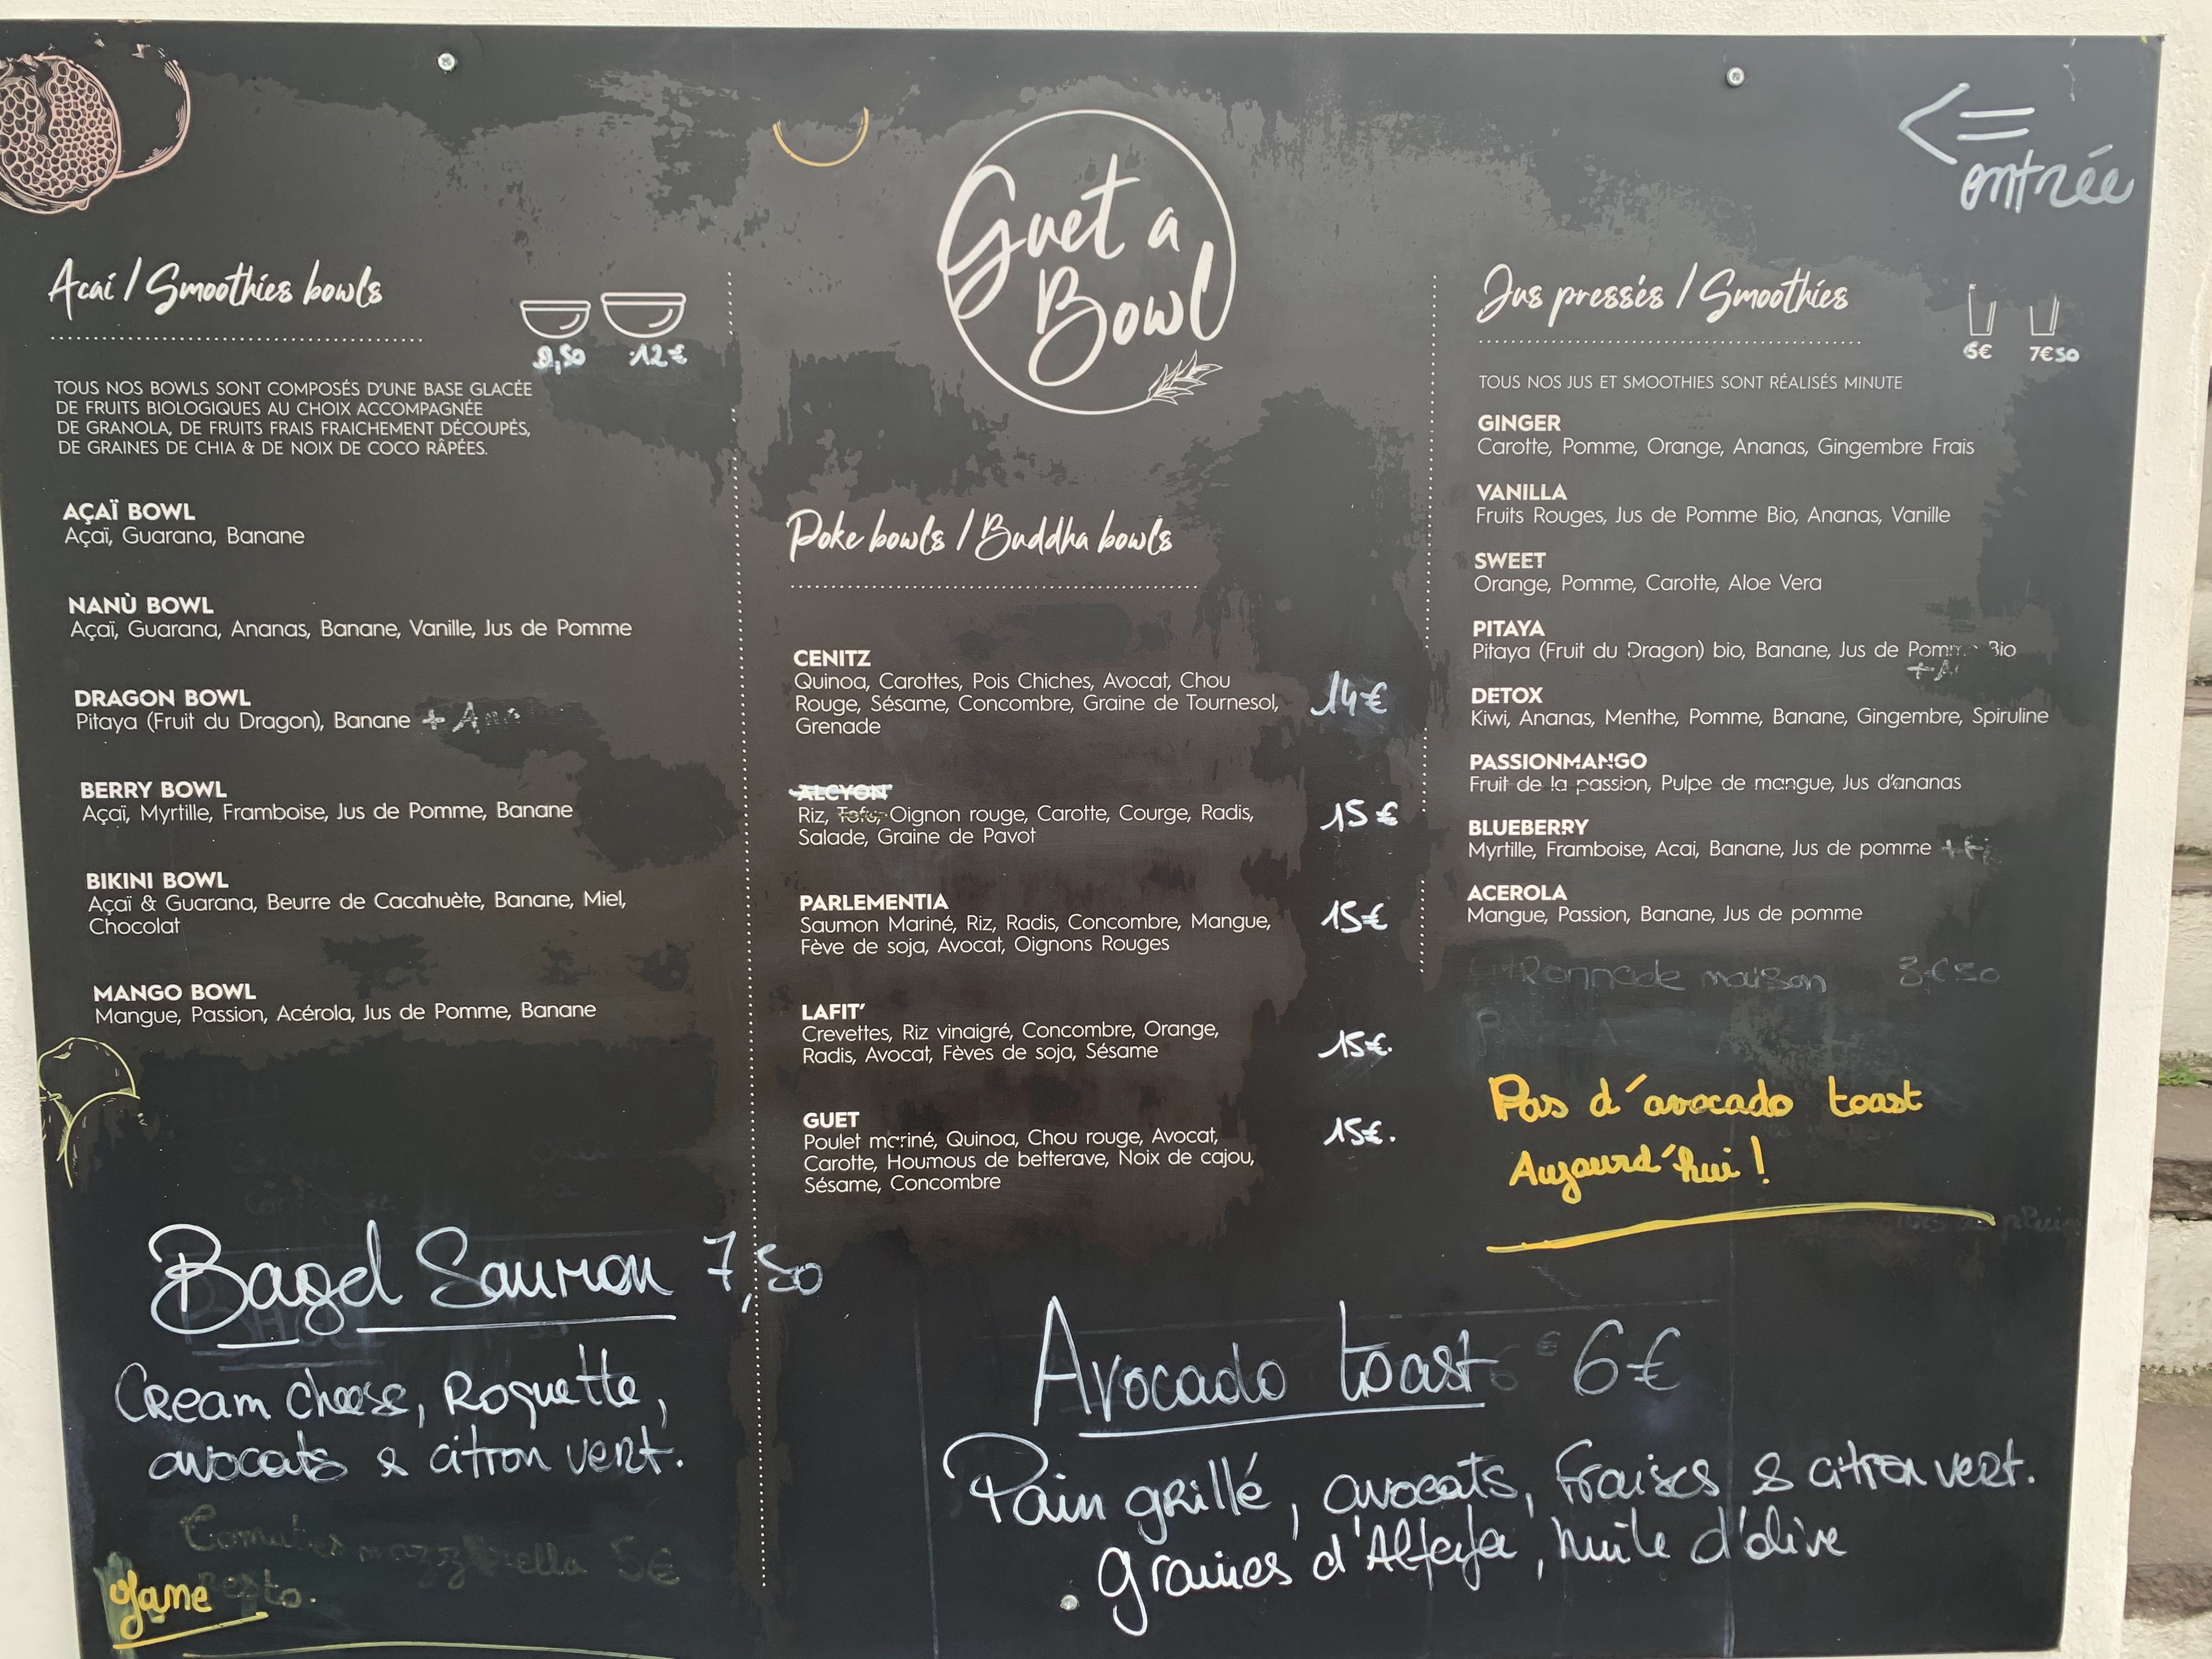 <= entrée
Guet a
Bowl
Acai / Smoothies bowls
9,50 12€
TOUS NOS BOWLS SONT COMPOSÉS D'UNE BASE GLACÉE
DE FRUITS BIOLOGIQUES AU CHOIX ACCOMPAGNÉE
DE GRANOLA, DE FRUITS FRAIS FRAICHEMENT DÉCOUPÉS,
DE GRAINES DE CHIA & DE NOIX DE COCO RÂPÉES.
AÇAÏ BOWL
Açaï, Guarana, Banane
NANÙ BOWL
Açaï, Guarana, Ananas, Banane, Vanille, Jus de Pomme
DRAGON BOWL
Pitaya (Fruit du Dragon), Banane +
BERRY BOWL
Açaï, Myrtille, Framboise, Jus de Pomme, Banane
BIKINI BOWL
Açaï & Guarana, Beurre de Cacahuète, Banane, Miel,
Chocolat
MANGO BOWL
Mangue, Passion, Acérola, Jus de Pomme, Banane
Bagel Saumon 7,50
Cream cheese, Roquette,
avocats & citron vert.
Tomates mozzarella 5€
Pesto.
Poke bowls / Buddha bowls
CENITZ
Quinoa, Carottes, Pois Chiches, Avocat, Chou
Rouge, Sésame, Concombre, Graine de Tournesol,
Grenade
14€
ALCYON
Riz, Tofu, Oignon rouge, Carotte, Courge, Radis,
Salade, Graine de Pavot
15€
PARLEMENTIA
Saumon Mariné, Riz, Radis, Concombre, Mangue,
Fève de soja, Avocat, Oignons Rouges
15€
LAFIT'
Crevettes, Riz vinaigré, Concombre, Orange,
Radis, Avocat, Fèves de soja, Sésame
15€.
GUET
Poulet mariné, Quinoa, Chou rouge, Avocat,
Carotte, Houmous de betterave, Noix de cajou,
Sésame, Concombre
15€.
Jus pressés / Smoothies
6€ 7€50
TOUS NOS JUS ET SMOOTHIES SONT RÉALISÉS MINUTE
GINGER
Carotte, Pomme, Orange, Ananas, Gingembre Frais
VANILLA
Fruits Rouges, Jus de Pomme Bio, Ananas, Vanille
SWEET
Orange, Pomme, Carotte, Aloe Vera
PITAYA
Pitaya (Fruit du Dragon) bio, Banane, Jus de Pomme Bio
DETOX
Kiwi, Ananas, Menthe, Pomme, Banane, Gingembre, Spiruline
PASSIONMANGO
Fruit de la passion, Pulpe de mangue, Jus d'ananas
BLUEBERRY
Myrtille, Framboise, Acai, Banane, Jus de pomme
ACEROLA
Mangue, Passion, Banane, Jus de pomme
Citronnade maison 3€50
Pas d'avocado toast
Aujourd'hui !
Avocado toast 6€
Pain grillé, avocats, fraises & citron vert.
graines d'Alfafa, huile d'olive